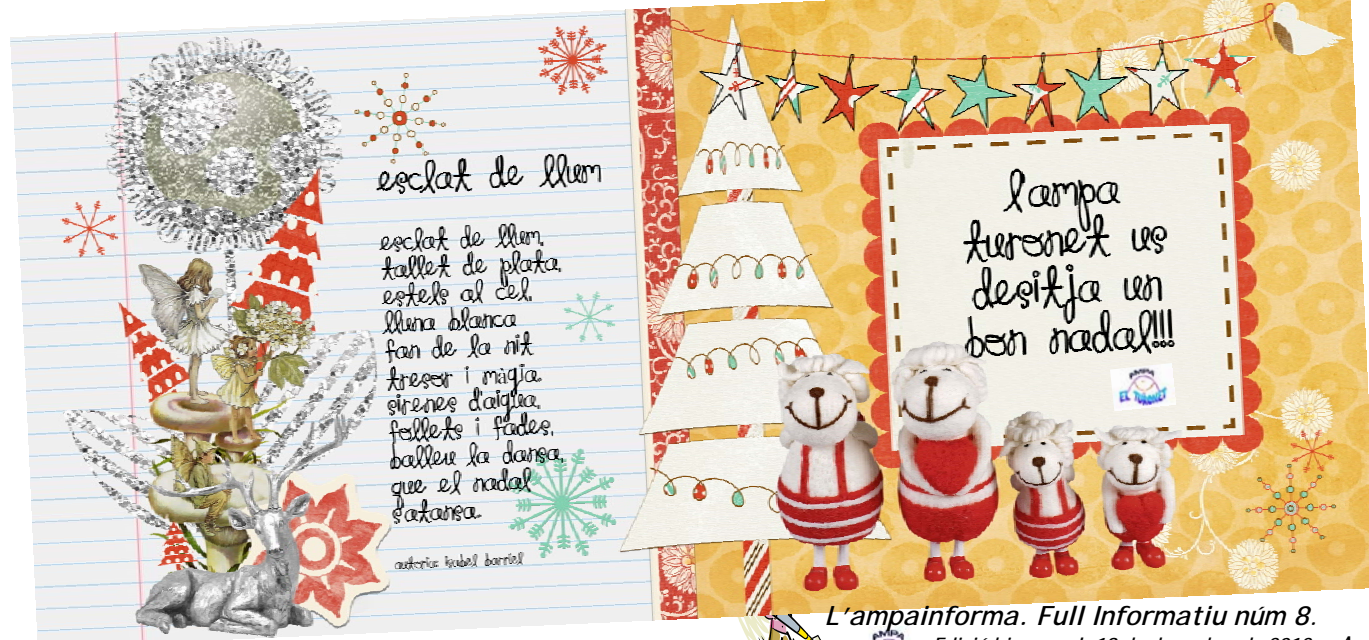 esclat de llum
esclat de llum,
tallet de plata,
estels al cel,
lluna blanca
fan de la nit
tresor i màgia.
sirenes d'aigua,
follets i fades,
balleu la dansa,
que el nadal
s'atansa.
autoria: isabel barriel
l'ampa
turonet us
desitja un
bon nadal!!!
AMPA
EL TURONET
L'ampainforma. Full Informatiu núm 8.